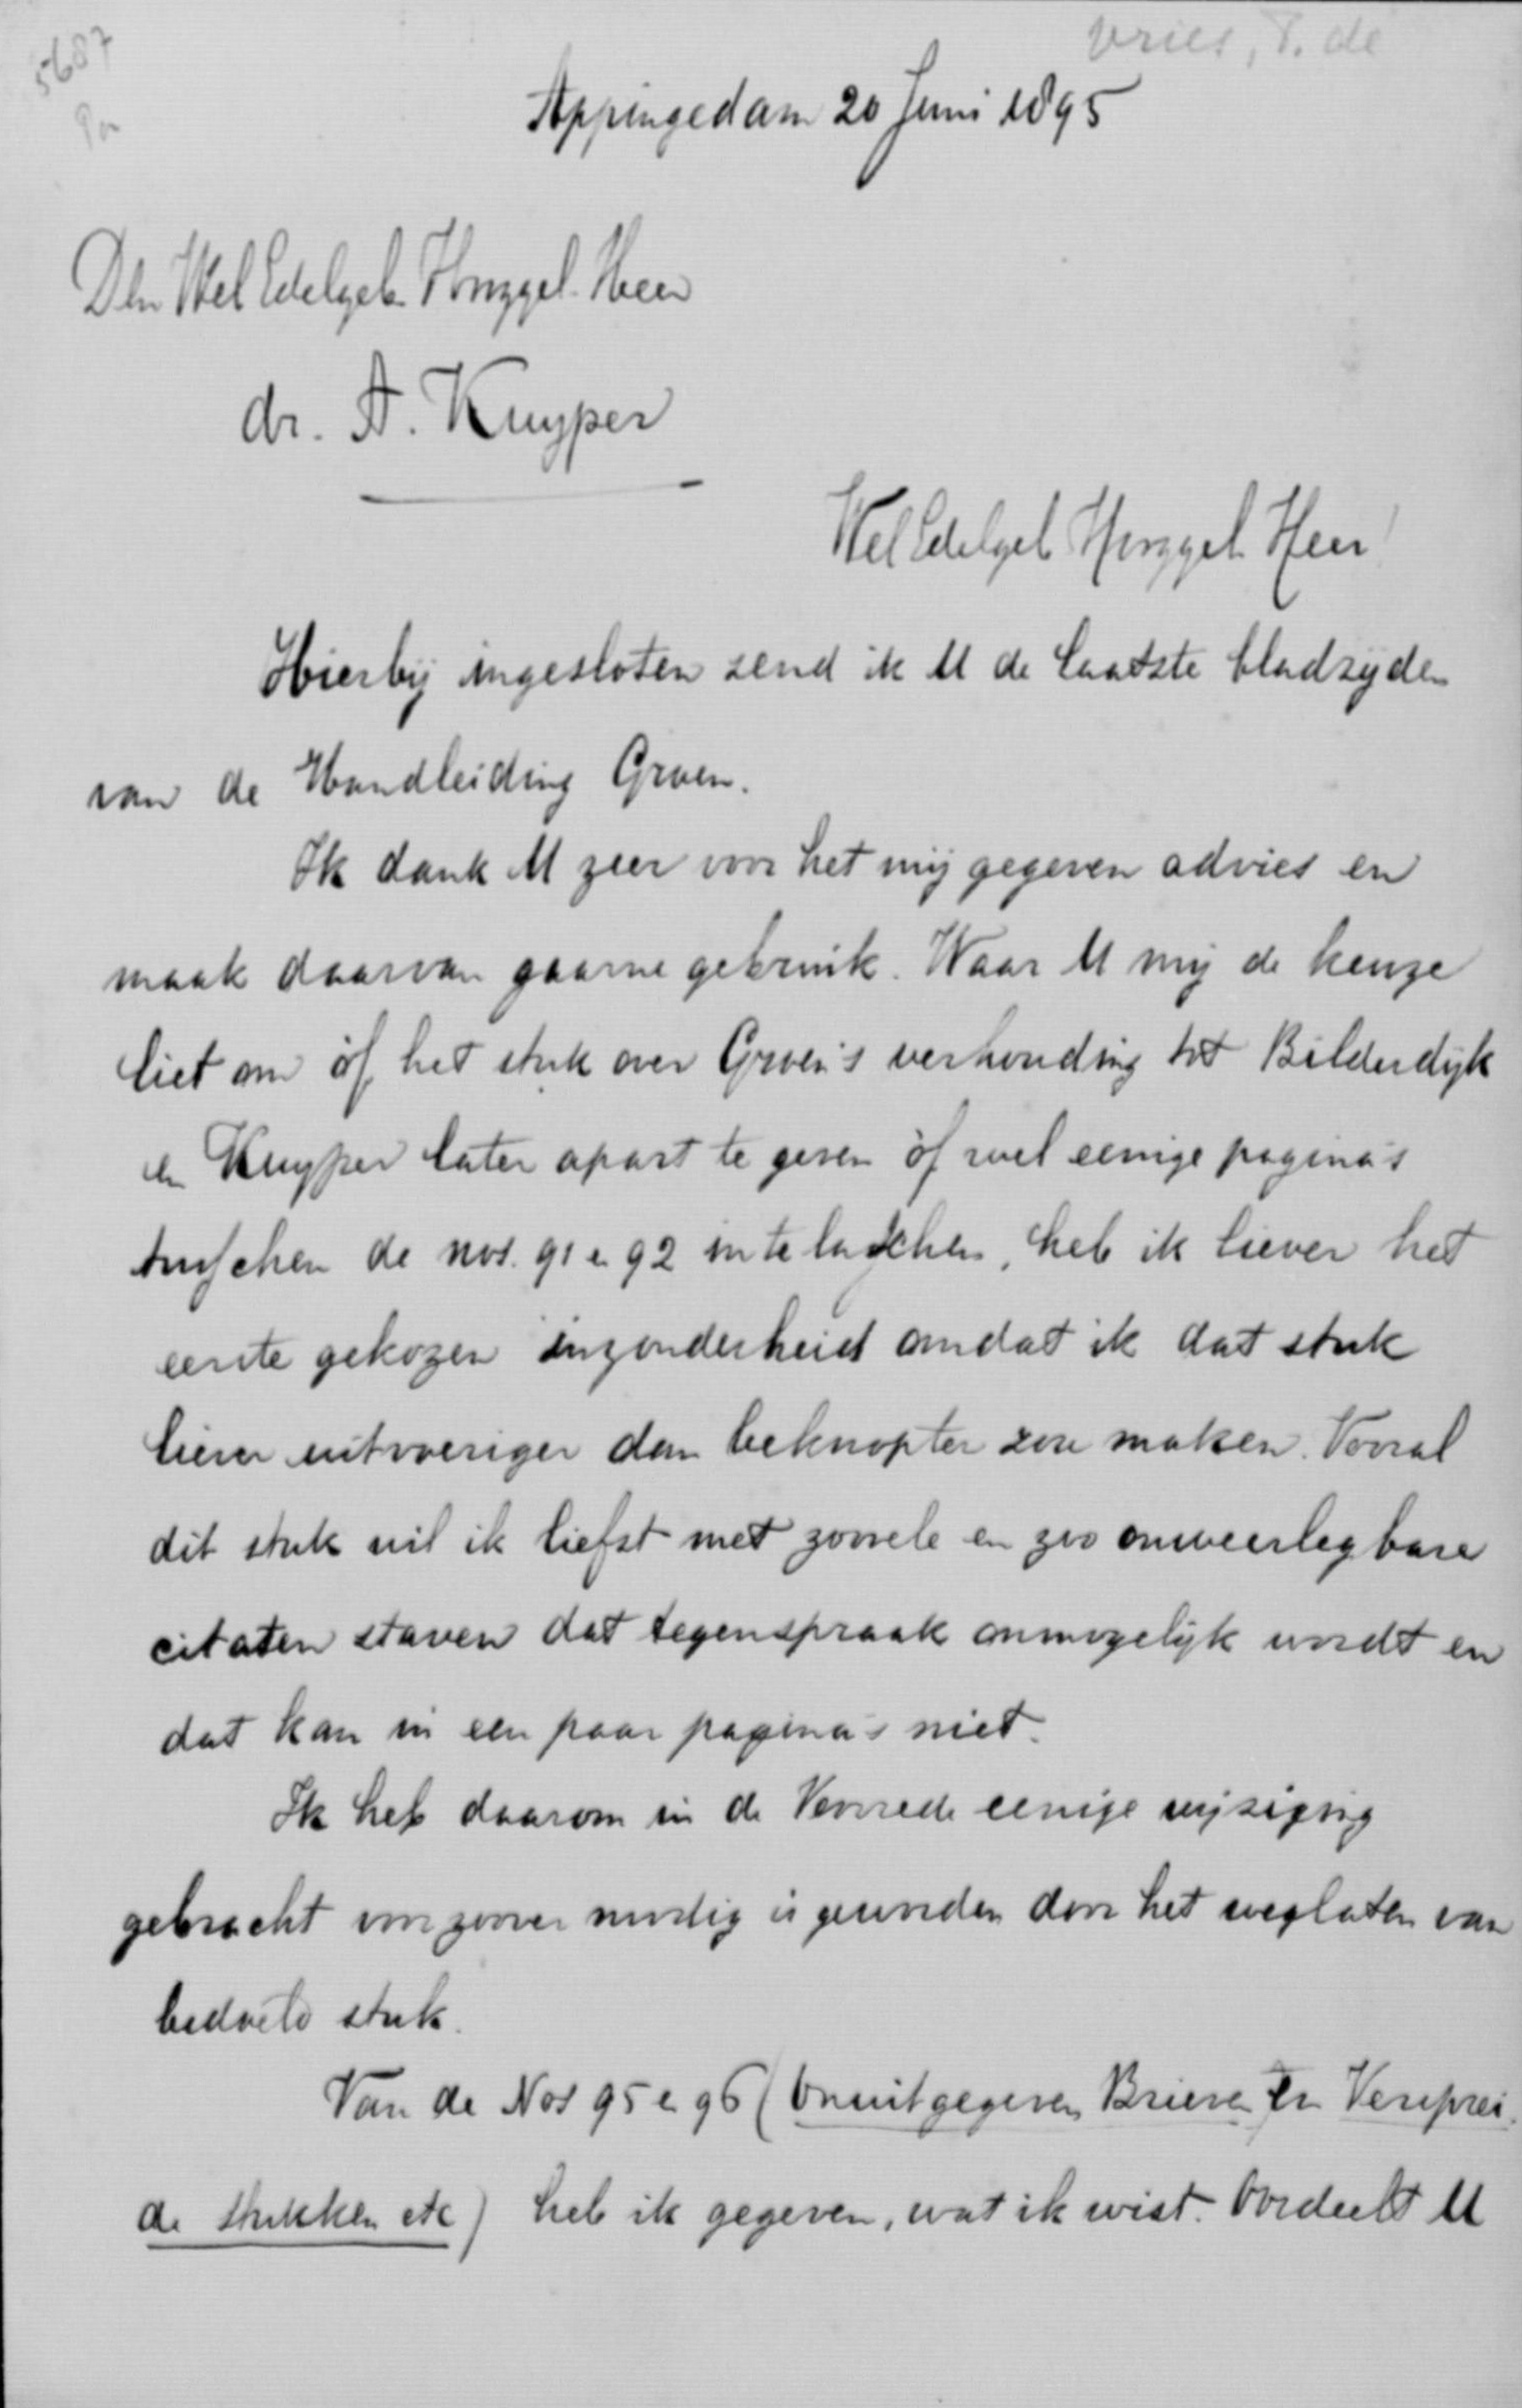 5687
Vries, T. de
Appingedam 20 Juni 1895
Den WelEdelgeb. Hooggel. Heer
dr. A. Kuyper
WelEdelgeb Hooggel. Heer!
Hierbij ingesloten zend ik U de laatste bladzijden
van de Handleiding Groen.
Ik dank U zeer voor het mij gegeven advies en
maak daarvan gaarne gebruik. Waar U mij de keuze
liet om òf het stuk over Groen's verhouding tot Bilderdijk
en Kuyper later apart te geven òf wel eenige pagina's
tusschen de nos. 91 en 92 in te lasschen, heb ik liever het
eerste gekozen inzonderheid omdat ik dat stuk
liever uitvoeriger dan beknopter zou maken. Vooral
dit stuk wil ik liefst met zoovele en zoo onweerlegbare
citaten staven dat tegenspraak onmogelijk wordt en
dat kan in een paar pagina's niet.
Ik heb daarom in de Voorrede eenige wijziging
gebracht voorzoover noodig is geworden door het weglaten van
bedoeld stuk.
Van de Nos 95 en 96 (Onuitgegeven Brieven en Versprei-
de stukken etc) heb ik gegeven, wat ik wist. Oordeelt U